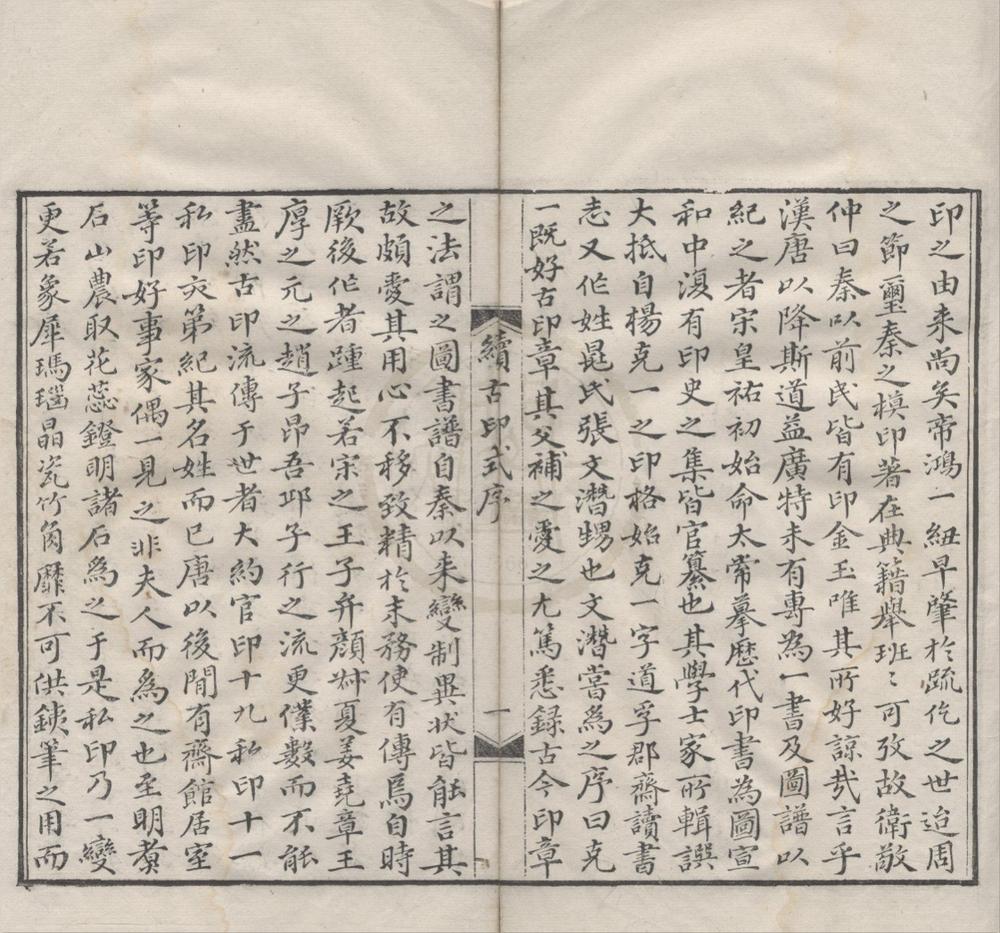 印之由来尚矣帝鴻一紐早肇於疏仡之世迨周
之節璽秦之模印著在典籍舉班〻可攷故衛敬
仲曰秦以前民皆有印金玉唯其所好諒哉言乎
漢唐以降斯道益廣特未有專為一書及圖譜以
紀之者宋皇祐初始命太常摹歷代印書為圖宣
和中復有印史之集皆官纂也其學士家所輯譔
大抵自楊克一之印格始克一字道孚郡齋讀書
志又作姓晁氏張文潛甥也文潛嘗為之序曰克
一既好古印章其父補之愛之尤篤悉録古今印章
續古印式序
一
之法謂之圖書譜自秦以来變制異状皆能言其
故頗愛其用心不移致精於末務使有傳焉自時
厥後作者踵起若宋之王子弁顔叔夏姜堯章王
厚之元之趙子昂吾邱子行之流更僕數而不能
盡然古印流傳于世者大約官印十九私印十一
私印亦第紀其名姓而已唐以後閒有齋館居室
等印好事家偶一見之非夫人而為之也至明煑
石山農取花蕊鐙明諸石為之于是私印乃一變
更若象犀瑪瑙晶瓷竹角靡不可供鐵筆之用而